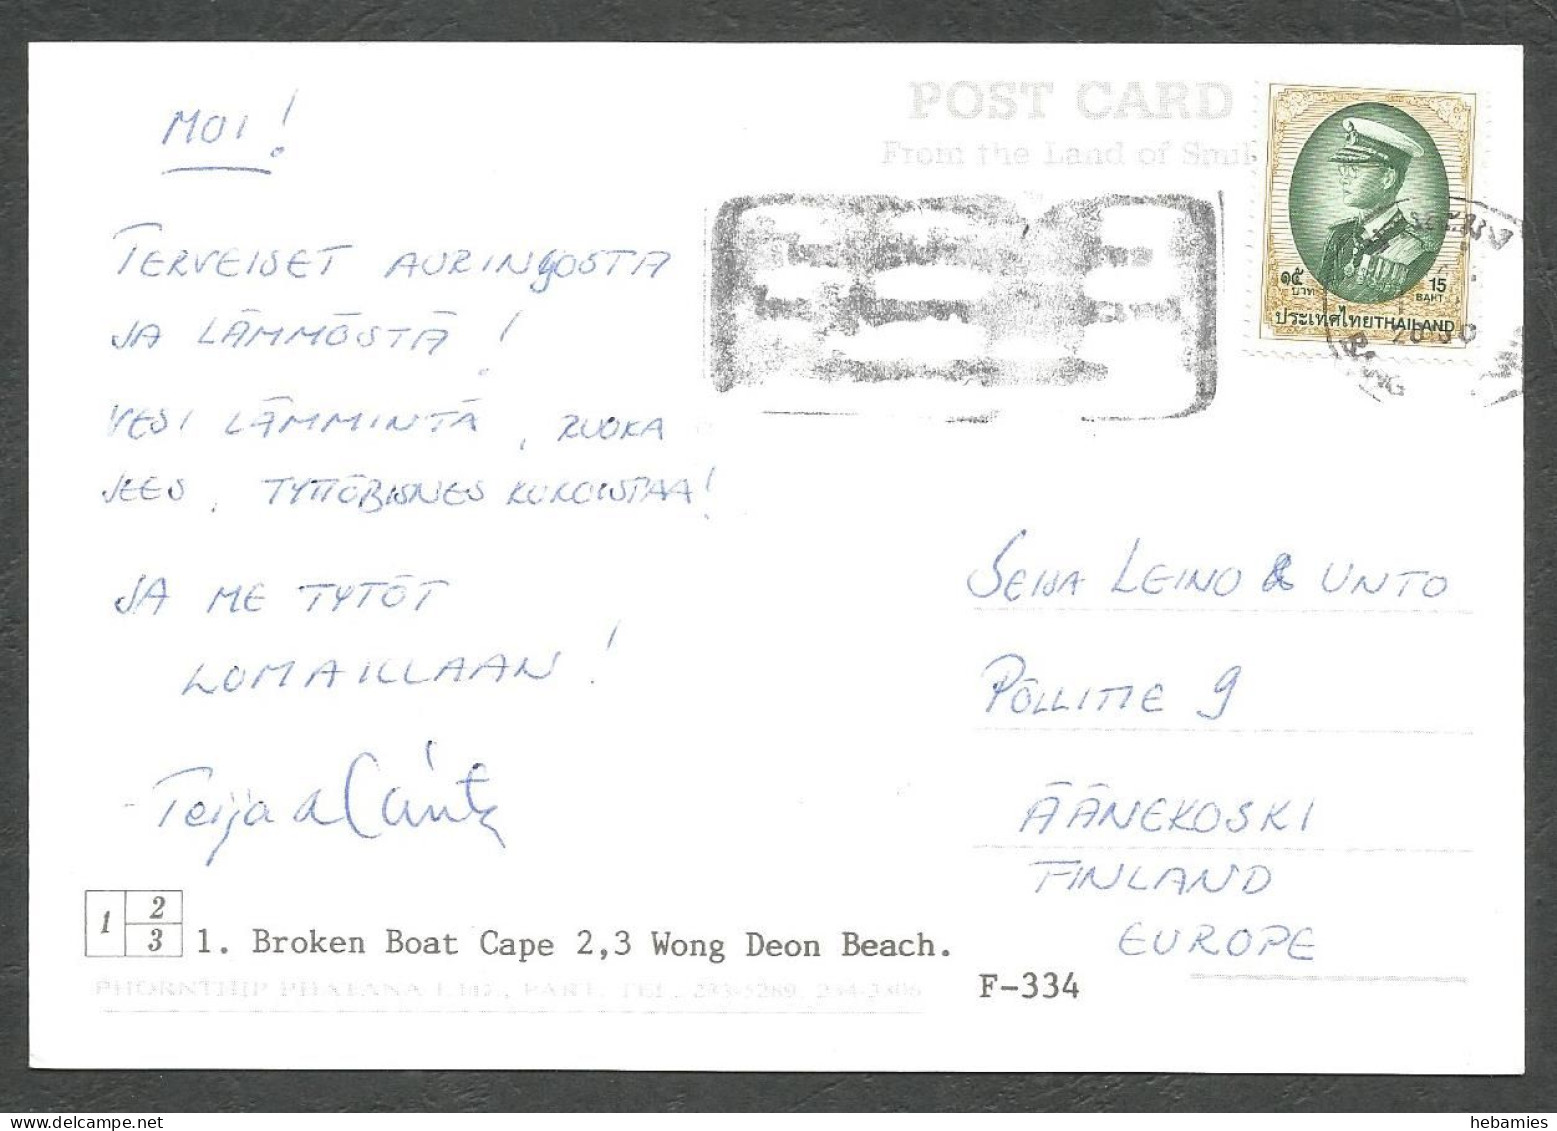 MOI!
TERVEISET AURINGOSTA
JA LÄMMÖSTÄ!
VESI LÄMMINTÄ, RUOKA
JEES, TYTTÖBISNES KUKOISTAA!
JA ME TYTÖT
LOMAILLAAN!
Teija
POST CARD
From the Land of Smil
๑๕
บาท
15
BAHT
ประเทศไทย THAILAND
SEIJA LEINO & UNTO
PÖLLITIE 9
ÄÄNEKOSKI
FINLAND
EUROPE
1 2 3
1. Broken Boat Cape 2,3 Wong Deon Beach.
PHORNTHIP PHATANA LTD., PART. TEL.
F-334
hebamies